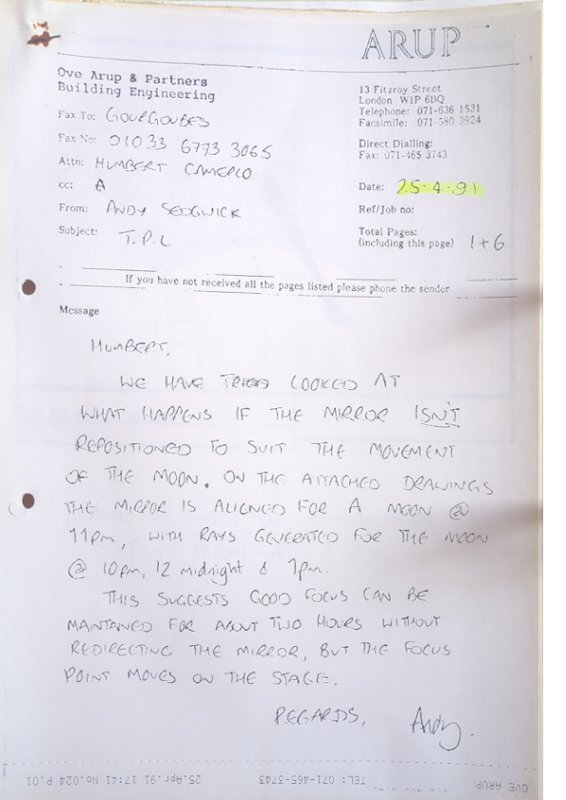 ARUP
Ove Arup & Partners
Building Engineering
13 Fitzroy Street
London W1P 6BQ
Telephone: 071-636 1531
Facsimile: 071-580 3924
Direct Dialling:
Fax: 071-465 3743
Fax To: GOURGOUBES
Fax No: 01033 6773 3065
Attn: HUMBERT CAMERLO
cc: A
From: ANDY SEDGWICK
Subject: T.P.L
Date: 25.4.91
Ref/Job no:
Total Pages:
(including this page) 1+6
If you have not received all the pages listed please phone the sender
Message
HUMBERT,
WE HAVE LOOKED AT
WHAT HAPPENS IF THE MIRROR ISN'T
REPOSITIONED TO SUIT THE MOVEMENT
OF THE MOON. ON THE ATTACHED DRAWINGS
THE MIRROR IS ALIGNED FOR A MOON @
11pm, WITH RAYS GENERATED FOR THE MOON
@ 10pm, 12 midnight & 1pm.
THIS SUGGESTS GOOD FOCUS CAN BE
MAINTAINED FOR ABOUT TWO HOURS WITHOUT
REDIRECTING THE MIRROR, BUT THE FOCUS
POINT MOVES ON THE STAGE.
REGARDS, Andy.
OVE ARUP TEL: 071-465-3743 25.Apr.91 17:41 No.024 P.01